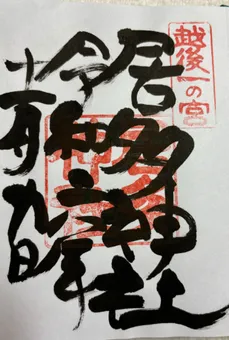 越後一の宮
居多神社
令和年
十一月九日